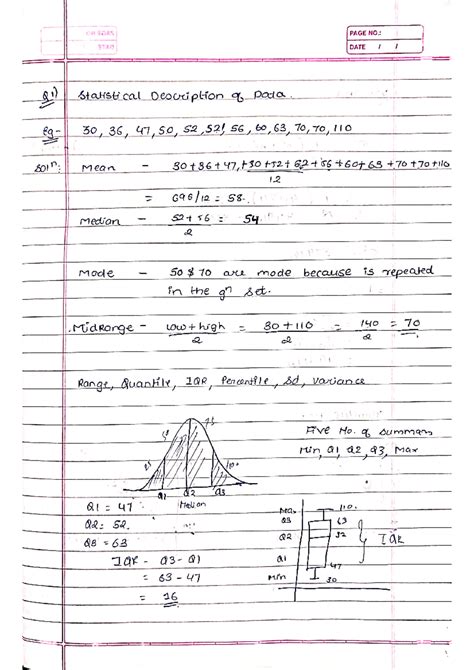 PAGE NO.:
DATE / /
Q1) Statistical Description of Data.
eg- 30, 36, 47, 50, 52, 52, 56, 60, 63, 70, 70, 110
Soln: Mean - 30+36+47+50+52+52+56+60+63+70+70+110
12
= 696/12 = 58.
Median - 52+56 = 54
2
Mode - 50 $ 70 are mode because is repeated
in the gn set.
Midrange - low+high = 30+110 = 140 = 70
2 2 2
Range, Quantile, IQR, Percentile, Sd, variance
Five No. of summary
Min, Q1, Q2, Q3, Max
Q1 Q2 Q3
Q1 = 47
Q2 = 52.
Q3 = 63
IQR - Q3 - Q1
= 63 - 47
= 16
Max 110.
Q3 63
Q2 52
IQR
Q1 47
Min 30